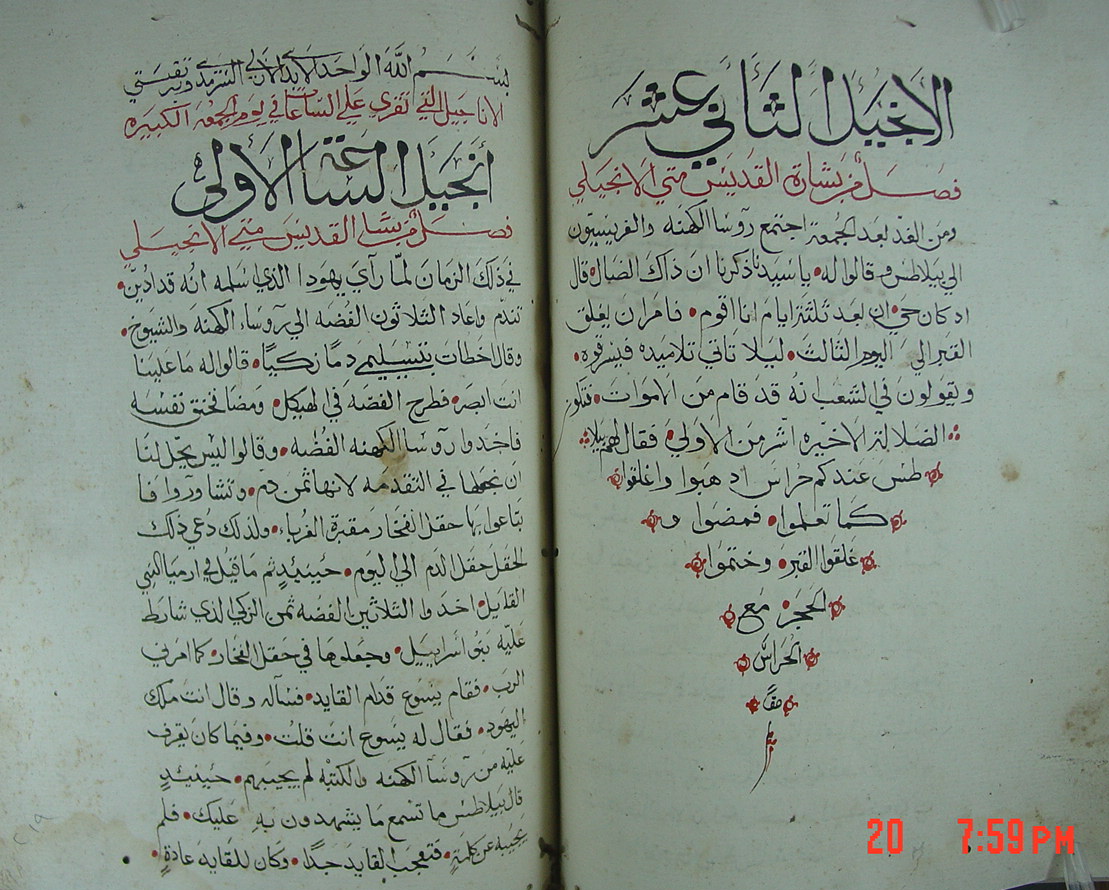 الانجيل الثاني عشر
فصل من بشارة القديس متي الانجيلي
ومن الغد بعد الجمعة اجتمع روسا الكهنه والفريسيون
الي بيلاطس وقالوا له يا سيدنا ذكرنا ان ذاك الضال قال
اد كان حي ان بعد ثلثة ايام انا اقوم فامر ان يغلق
القبر الي اليوم الثالث ليلا تاتي تلاميده فيسرقوه
ويقولون في الشعب انه قد قام من الاموات فتكون
الضلالة الاخيره اشر من الاولي فقال لهم بيلا
طس عندكم حراس ادهبوا واغلقوا
كما تعلموا فمضوا و
غلقوا القبر وختموا
الحجر مع
الحراس
حقا
بسم الله الواحد الابدي الازلي السرمدي
الاناجيل التي تقري علي الساعات في يوم الجمعه الكبيره
انجيل الساعة الاولي
فصل من بشارة القديس متي الانجيلي
في ذلك الزمان لما رآي يهودا الذي سلمه انه قد ادين
تندم واعاد الثلاثون الفضه الي روساء الكهنه والشيوخ
وقال اخطات بتسليمي دما زكيا قالوا له ما علينا
انت ابصر فطرح الفضه في الهيكل ومضا فخنق نفسه
فاخدوا روسا الكهنه الفضه وقالوا ليس يحل لنا
ان نجعلها في التقدمه لانها ثمن دم وتشاوروا فا
بتاعوا بها حقل الفخار مقبرة الغرباء ولذلك دعي ذلك
الحقل حقل الدم الي اليوم حينيدٍ تم ما قيل في ارميا النبي
القايل اخدوا الثلاثين الفضه ثمن الزكي الذي شارط
عليه بنو اسراييل وجعلوها في حقل الفخار كما امرني
الرب فقام يسوع قدام القايد فسآله وقال انت ملك
اليهود فقال له يسوع انت قلت وفيما كان يقرف
عليه من روسآ الكهنه والكتبه لم يجيبهم حينيدٍ
قال بيلاطس ما تسمع ما يشهدون به عليك فلم
يجيبه عن كلمة فتعجب القايد جدا وكان للقايد عادة
20 7:59 PM